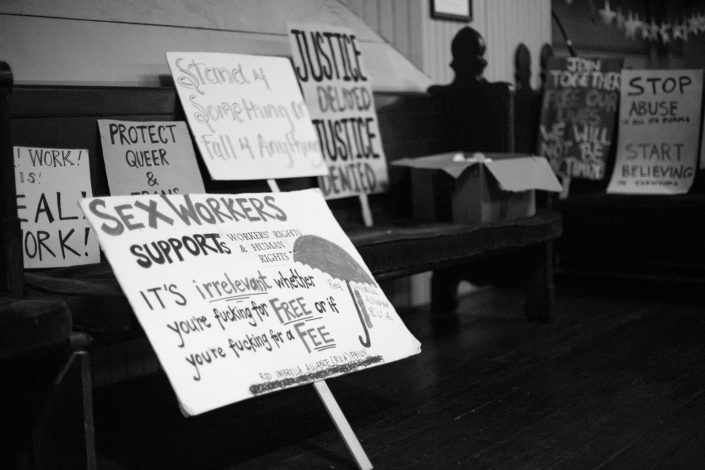 ! WORK!
IS!
EAL!
ORK!
PROTECT
QUEER
&
Stand 4
Something or
Fall 4 Anything
JUSTICE
DELAYED
JUSTICE
DENIED
SEX WORKERS
SUPPORTS WORKERS' RIGHTS
& HUMAN
RIGHTS
IT'S irrelevant whether
you're fucking for FREE or if
you're fucking for a FEE
RED UMBRELLA ALLIANCE (R.U.A)
R.U.A
JOIN
TOGETHER
WE WILL
NOT BE
STOP
ABUSE
IN ALL ITS FORMS
START
BELIEVING